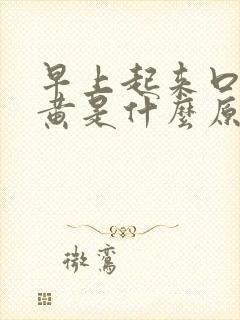 早上起来口
黄是什麼原
微鸾